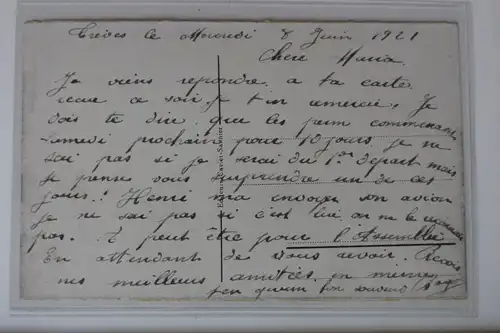 Trèves le Mercredi 8 Juin 1921
Chère Maria
Je viens repondre a ta carte
recue ce soir. Je t'en remercie, Je
dois te dire que les perm commencent
samedi prochain pour 10 jours. Je ne
sai pas si je serai du 1er depart mais
je pense vous surprendre un de ces
jours! Henri ma envoyer son avion
je ne sai pas si c'est lui on ne le
pas. A peut être pour l'Assemblée
En attendant de vous revoir. Recois
mes meilleurs amitiés